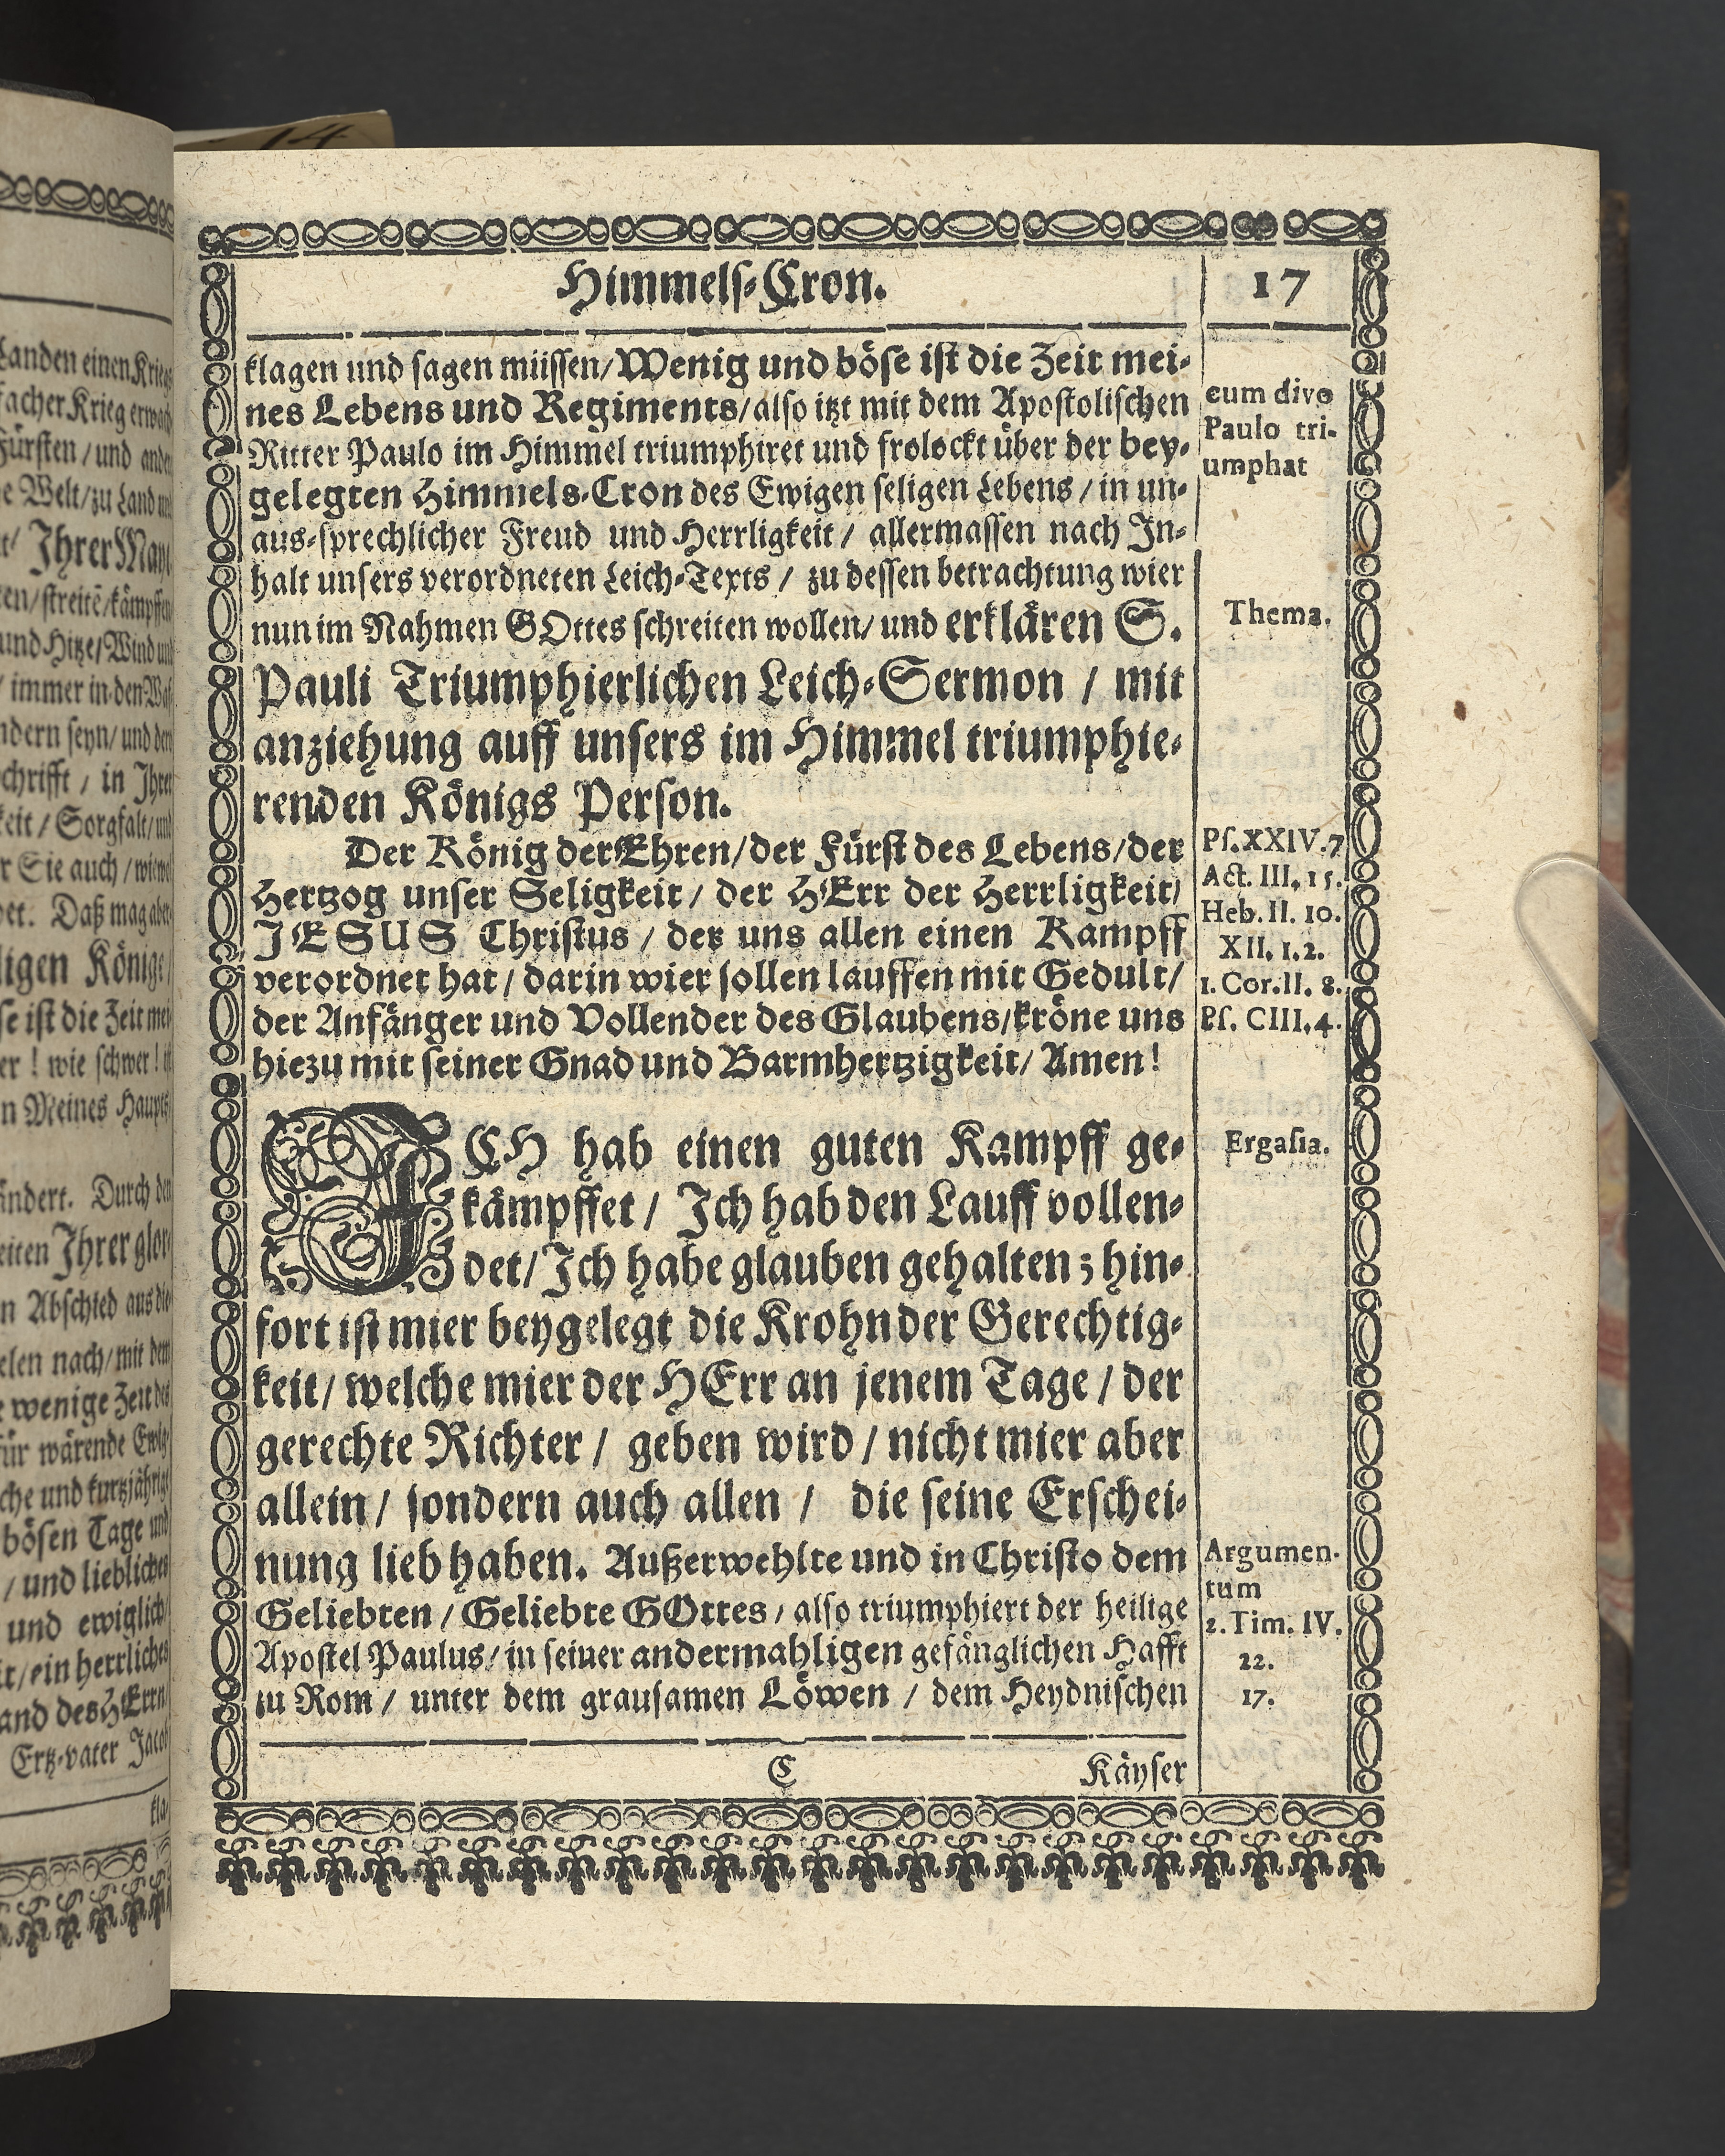 Himmels-Cron.
17
klagen und sagen müssen/Wenig und böse ist die Zeit mei-
nes Lebens und Regiments/also itzt mit dem Apostolischen
Ritter Paulo im Himmel triumphiret und frolockt über der bey-
gelegten Himmels-Cron des Ewigen seligen Lebens / in un-
aus-sprechlicher Freud und Herrligkeit / allermassen nach In-
halt unsers verordneten Leich-Texts / zu dessen betrachtung wier
nun im Nahmen GOttes schreiten wollen/ und erklären S.
Pauli Triumphierlichen Leich-Sermon / mit
anziehung auff unsers im Himmel triumphie-
renden Königs Person.
Der König der Ehren/der Fürst des Lebens/der
Hertzog unser Seligkeit/ der HErr der Herrligkeit/
JESUS Christus / der uns allen einen Kampff
verordnet hat / darin wier sollen lauffen mit Gedult/
der Anfänger und Vollender des Glaubens/kröne uns
hiezu mit seiner Gnad und Barmhertzigkeit/ Amen!
ICH hab einen guten Kampff ge-
kämpffet / Ich hab den Lauff vollen-
det/ Ich habe glauben gehalten; hin-
fort ist mier beygelegt die Krohn der Gerechtig-
keit/ welche mier der HErr an jenem Tage / der
gerechte Richter / geben wird / nicht mier aber
allein / sondern auch allen / die seine Erschei-
nung lieb haben. Außerwehlte und in Christo dem
Geliebten / Geliebte GOttes / also triumphiert der heilige
Apostel Paulus/ in seiner andermahligen gefänglichen Hafft
zu Rom / unter dem grausamen Löwen / dem Heydnischen
C
Käyser
cum divo
Paulo tri-
umphat
Thema.
Ps. XXIV. 7
Act. III. 15.
Heb. II. 10.
XII. 1. 2.
1. Cor. II. 8.
Ps. CIII. 4.
Ergasia.
Argumen-
tum
2. Tim. IV.
22.
17.